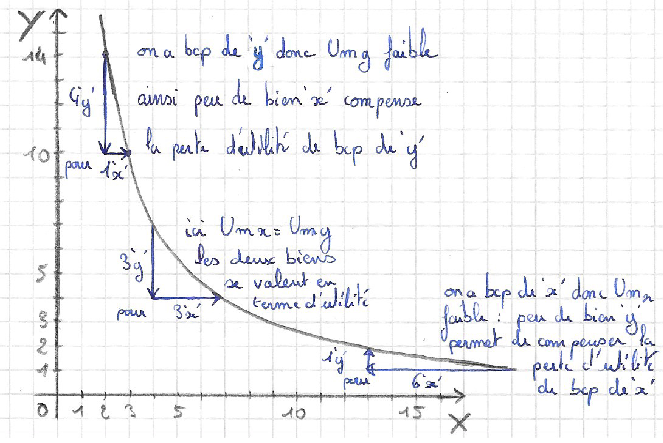 Y
14
on a bcp de 'y' donc Umy faible
4'y'
ainsi peu de bien 'x' compense
10
la perte d'utilité de bcp de 'y'
pour 1'x'
ici Umx = Umy
les deux biens
se valent en
terme d'utilité
3'y'
pour 3'x'
5
4
3
2
1
on a bcp de 'x' donc Umx
faible : peu de bien 'y'
permet de compenser la
perte d'utilité
de bcp de 'x'
1'y'
pour 6'x'
0 1 2 3 5 10 15 X